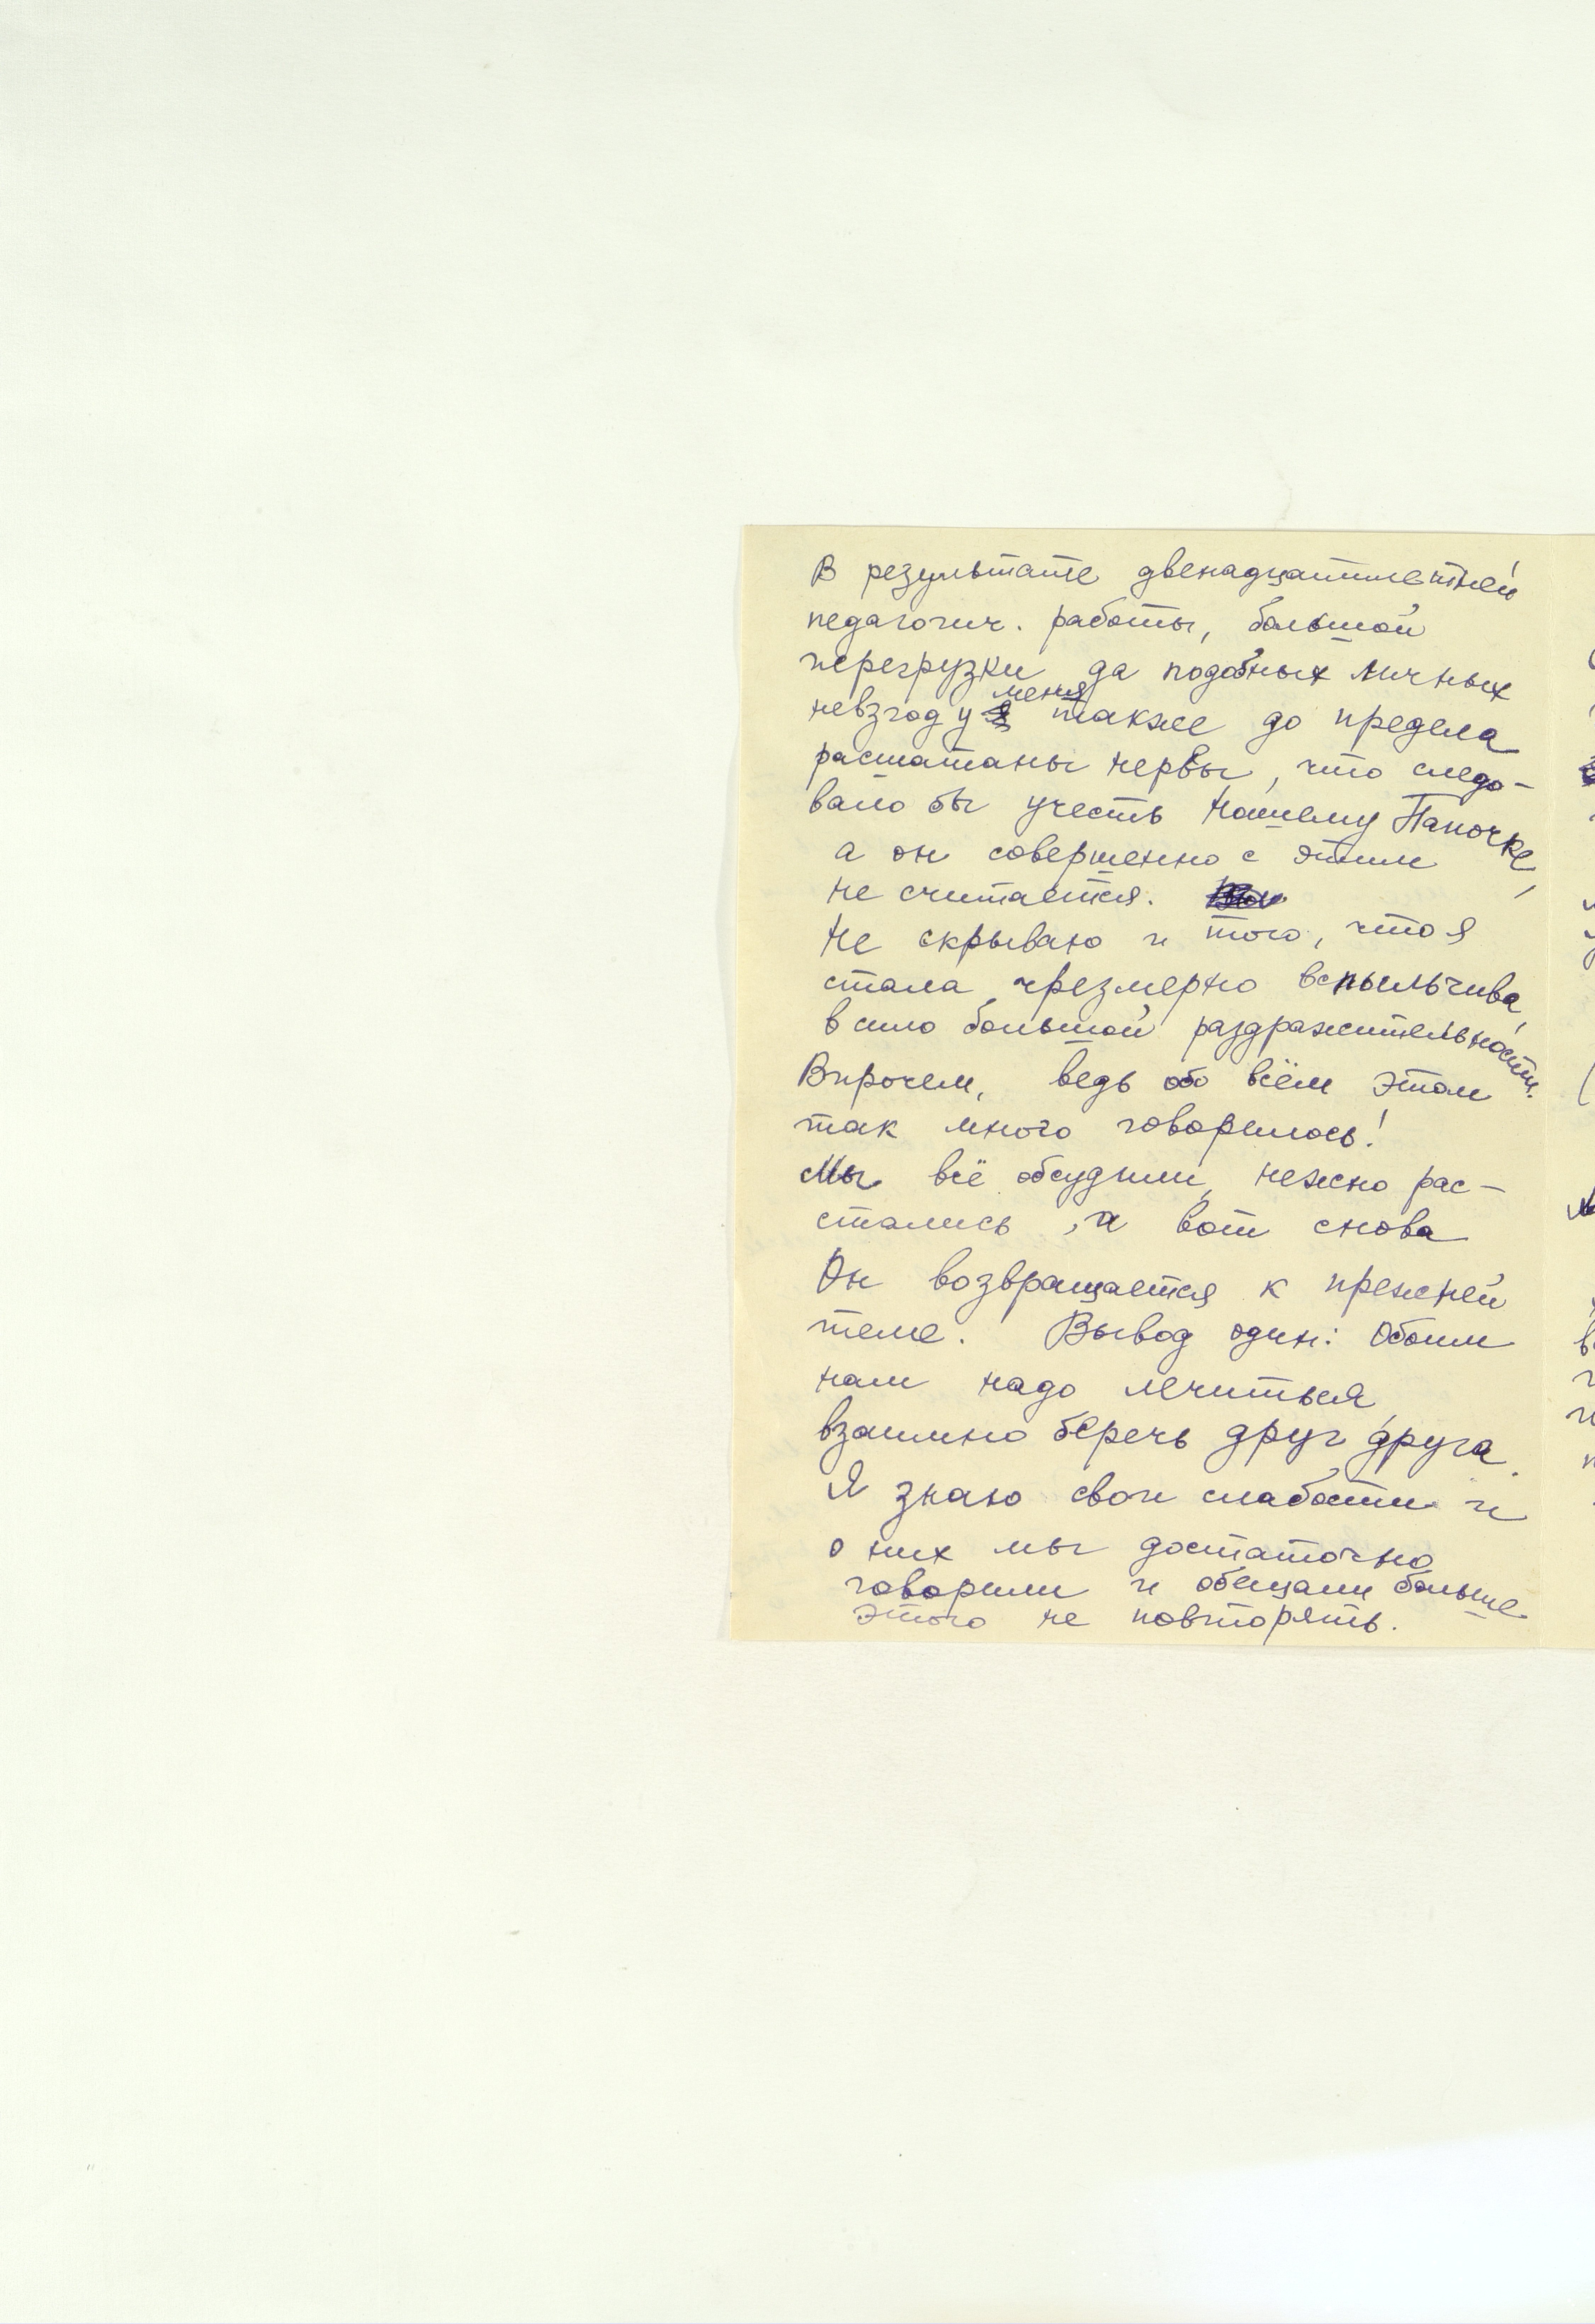 В результате двенадцатилетней
педагогич. работы, большой
перегрузки да подобных личных
невзгод у меня также до предела
расшатаны нервы, что следо-
вало бы учесть Нашему Папочке,
а он совершенно с этим
не считается.
Не скрываю и того, что я
стала чрезмерно вспыльчива,
в силу большой раздражительности.
Впрочем, ведь обо всём этом
так много говорилось!
Мы всё обсудили, нежно рас-
стались, а вот снова
Он возвращается к прежней
теме. Вывод один: Обоим
нам надо лечиться,
взаимно беречь друг друга.
Я знаю свои слабости и
о них мы достаточно
говорили и обещали больше
этого не повторять.